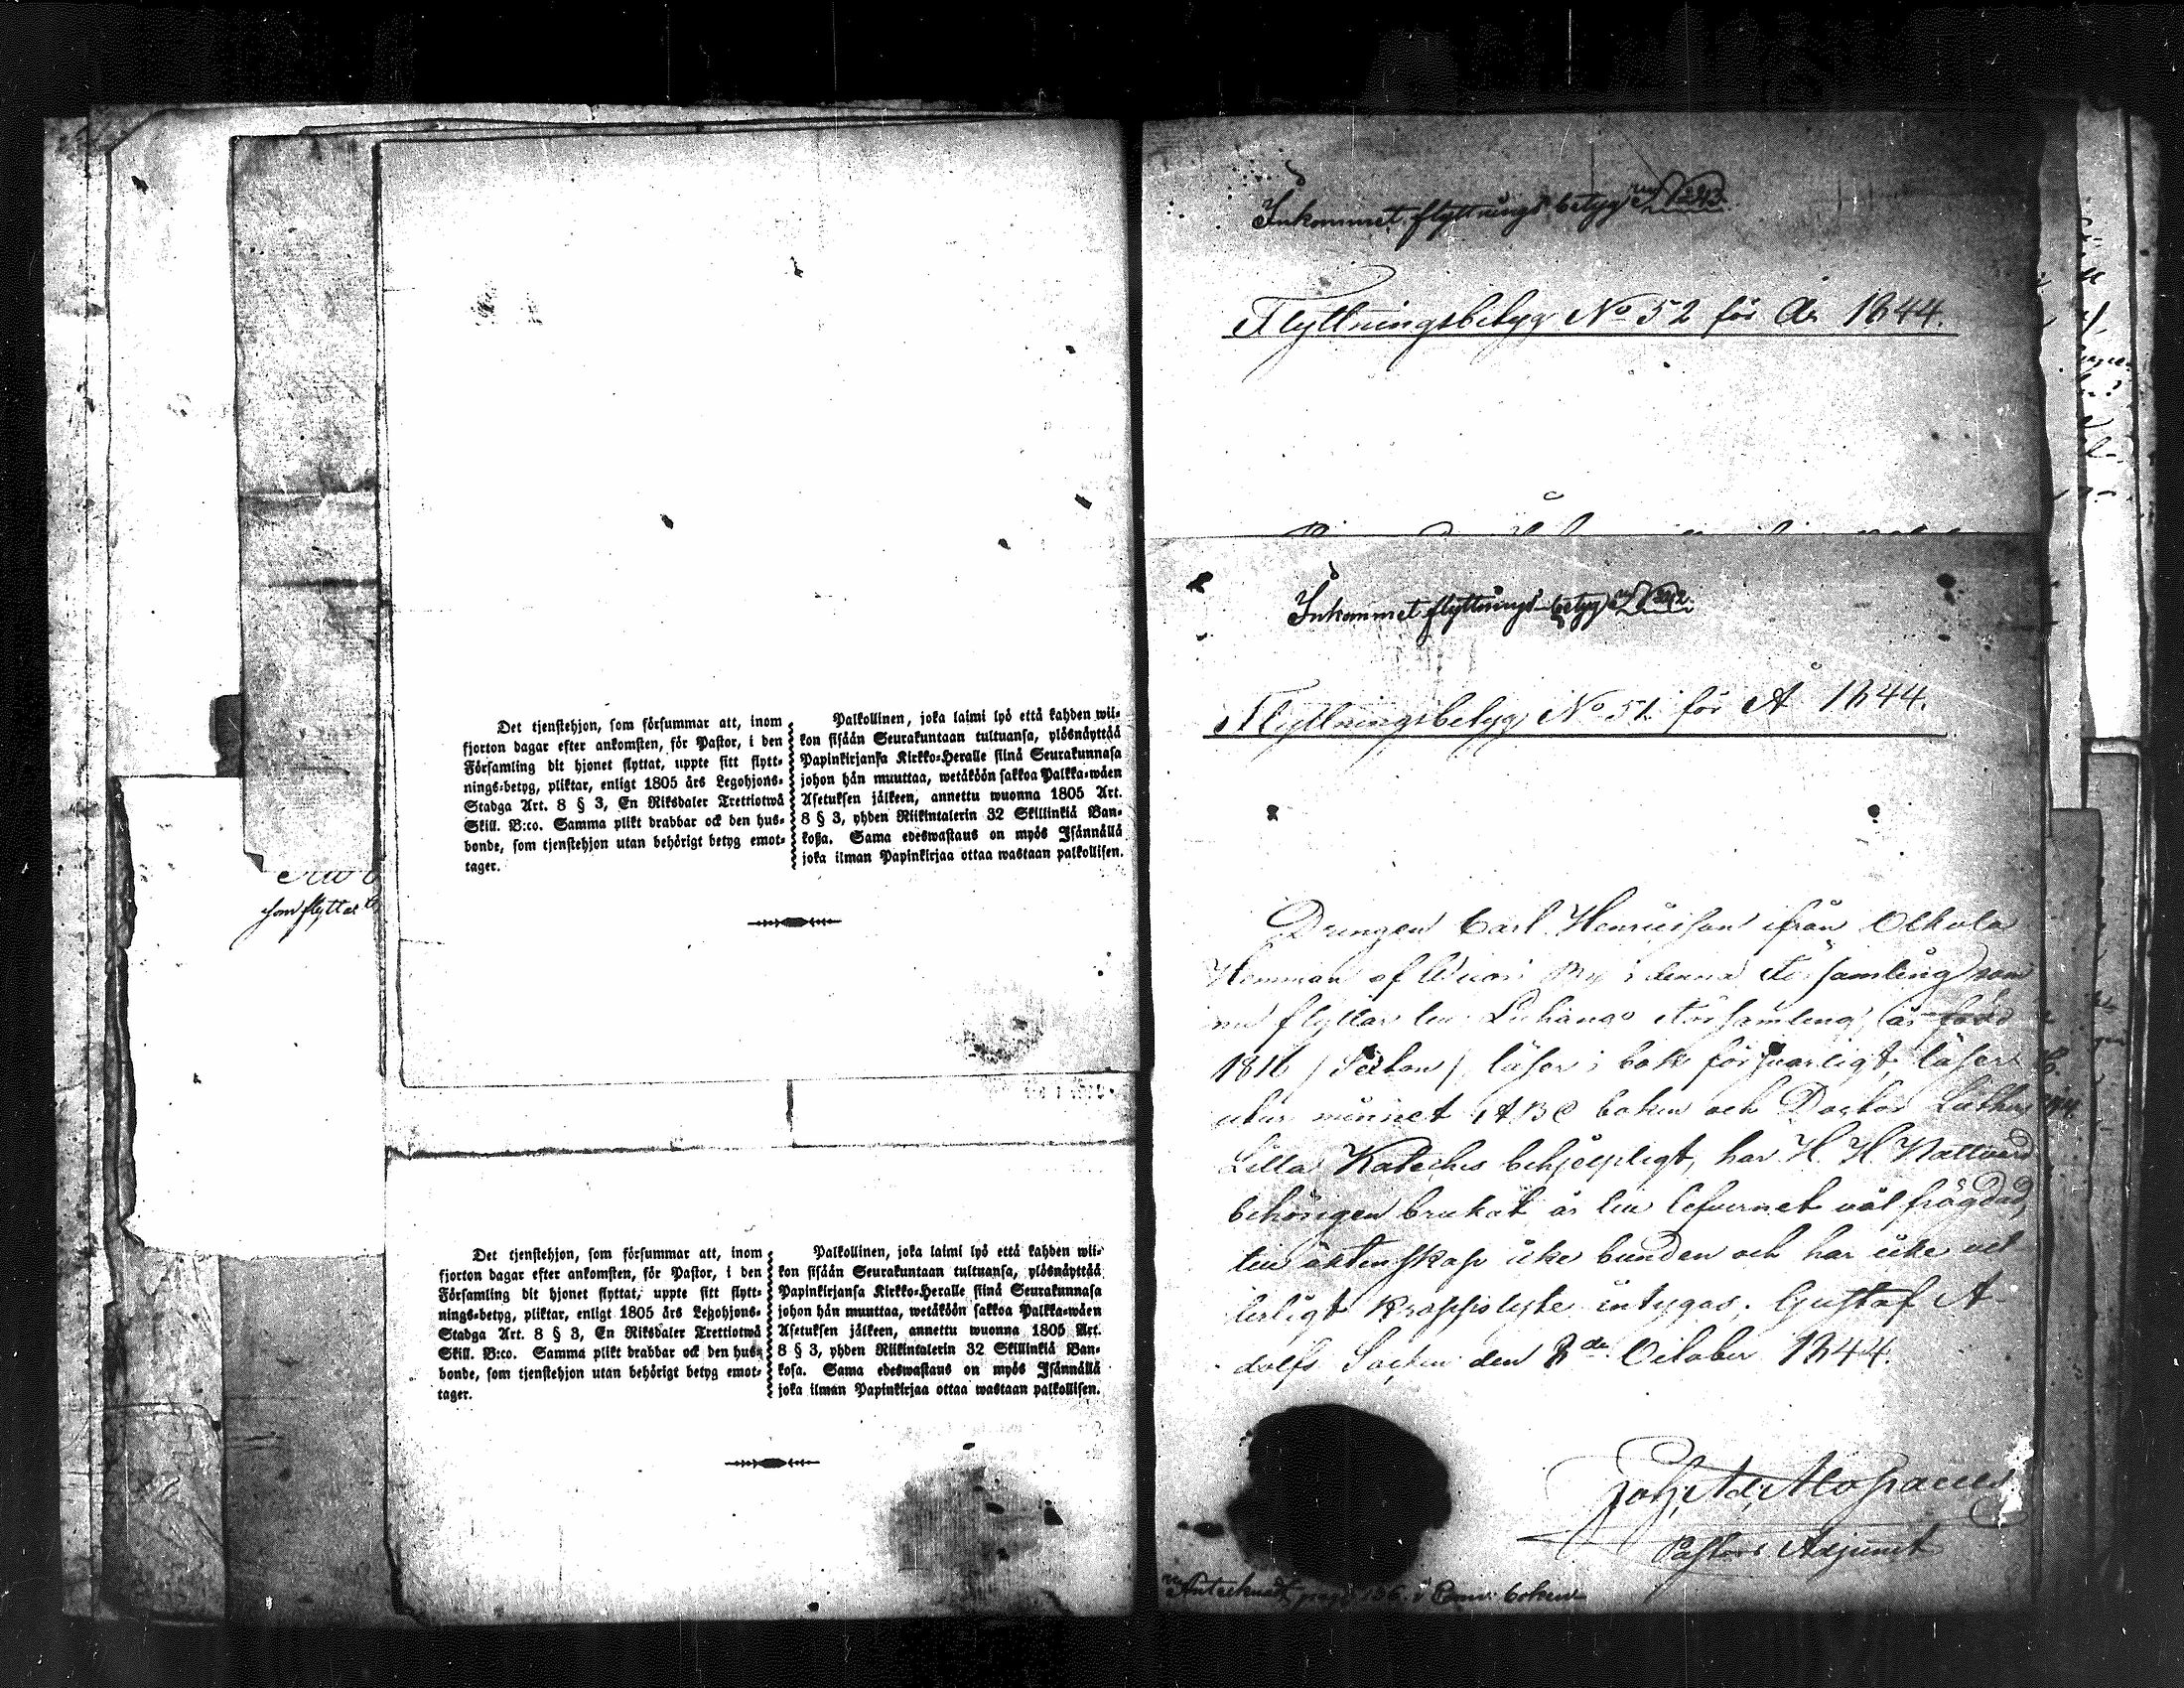 Det tjenstehjon, som försummar att, inom
fjorton dagar efter ankomsten, för Pastor, i den
Församling dit hjonet flyttat, uppte sitt flytt-
nings-betyg, pliktar, enligt 1805 års Legohjons-
Stadga Art. 8 § 3, En Riksdaler Trettiotwå
Skill. B:co. Samma plikt drabbar ock den hus-
bonde, som tjenstehjon utan behörigt betyg emot-
tager.
Palkollinen, joka laimi lyö että kahden wii-
kon sisään Seurakuntaan tultuansa, ylösnäyttää
Papinkirjansa Kirkko-Heralle siinä Seurakunnasa
johon hän muuttaa, wetäköön sakkoa Palkka-wäen
Asetuksen jälkeen, annettu wuonna 1805 Art.
8 § 3, yhden Riikintalerin 32 Skillinkiä Ban-
kosa. Sama edeswastaus on myös Isännällä
joka ilman Papinkirjaa ottaa wastaan palkollisen.
som flyttar
Det tjenstehjon, som försummar att, inom
fjorton dagar efter ankomsten, för Pastor, i den
Församling dit hjonet flyttat, uppte sitt flytt-
nings-betyg, pliktar, enligt 1805 års Legohjons-
Stadga Art. 8 § 3, En Riksdaler Trettiotwå
Skill. B:co. Samma plikt drabbar ock den hus-
bonde, som tjenstehjon utan behörigt betyg emot-
tager.
Palkollinen, joka laimi lyö että kahden wii-
kon sisään Seurakuntaan tultuansa, ylösnäyttää
Papinkirjansa Kirkko-Heralle siinä Seurakunnasa
johon hän muuttaa, wetäköön sakkoa Palkka-wäen
Asetuksen jälkeen, annettu wuonna 1805 Art.
8 § 3, yhden Riikintalerin 32 Skillinkiä Ban-
kosa. Sama edeswastaus on myös Isännällä
joka ilman Papinkirjaa ottaa wastaan palkollisen.
Inkommet flyttnings-betyg
Flyttningsbetyg No 52 för År 1844.
Inkommet flyttnings-betyg
Flyttningsbetyg No 51. för Å 1844.
Drengen Carl Henricsson ifrån Olkola
Hemman af By i denna Församling som
nu flyttar till Luhango Församling, är född
1816 läser i bok försvarligt, läser
utur minnet ABC boken och Doctor Luthers
Lilla Kateches behjelpligt, har H. H. Nattvard
behörigen brukat är till lefvernet väl frägdad,
till äktenskap icke bunden och har icke vet
terligt Kroppslyte intygas, Gustaf A
dolfs Socken den 8de October 1844.
Pastors Adjunct
Antecknadt, pag. 136. i Comm: boken